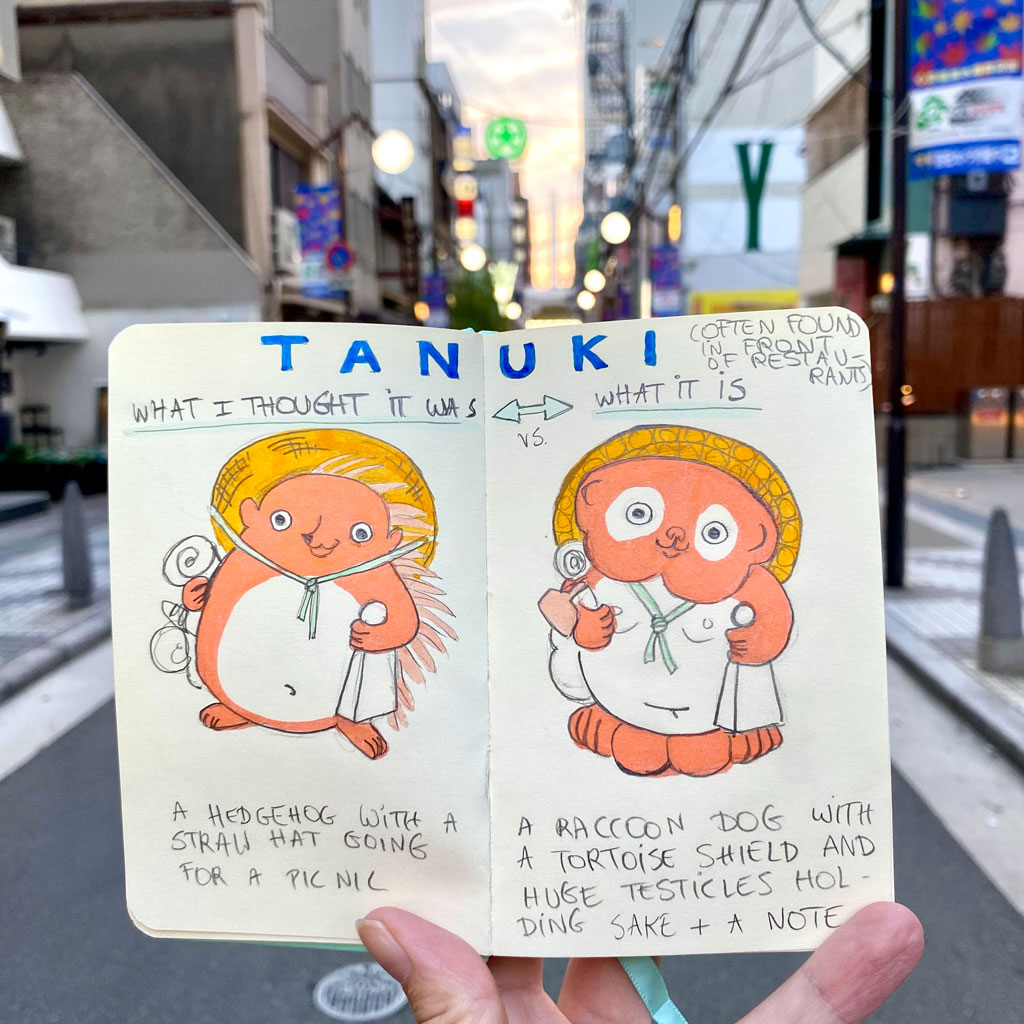 TANUKI
(OFTEN FOUND
IN FRONT
OF RESTAU-
RANTS)
WHAT I THOUGHT IT WAS
VS.
WHAT IT IS
A HEDGEHOG WITH A
STRAW HAT GOING
FOR A PICNIC
A RACCOON DOG WITH
A TORTOISE SHIELD AND
HUGE TESTICLES HOL-
DING SAKE + A NOTE
Y